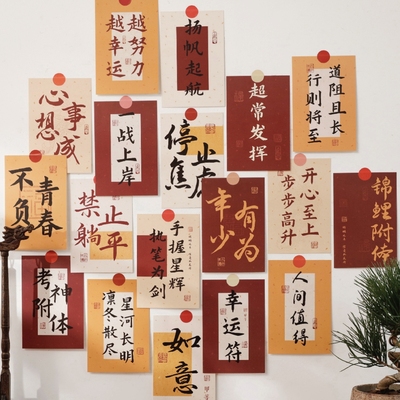 越努力
越幸运
扬帆起航
超常发挥
道阻且长
行则将至
心想
事成
一战上岸
停止
焦虑
不负
青春
禁止
躺平
手握星辉
执笔为剑
年少
有为
开心至上
步步高升
锦鲤附体
考神
附体
星河长明
凛冬散尽
如意
幸运符
人间值得